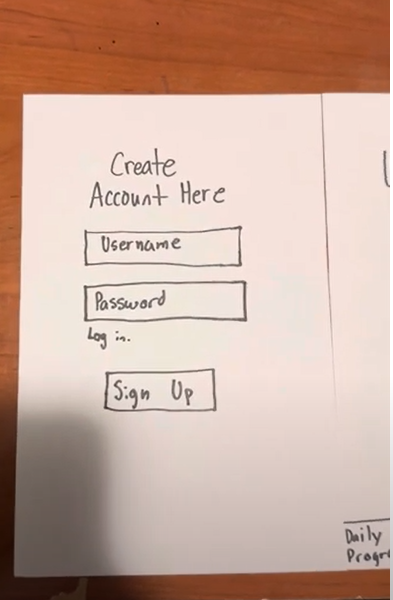 Create
Account Here
Username
Password
Log in.
Sign Up
Daily